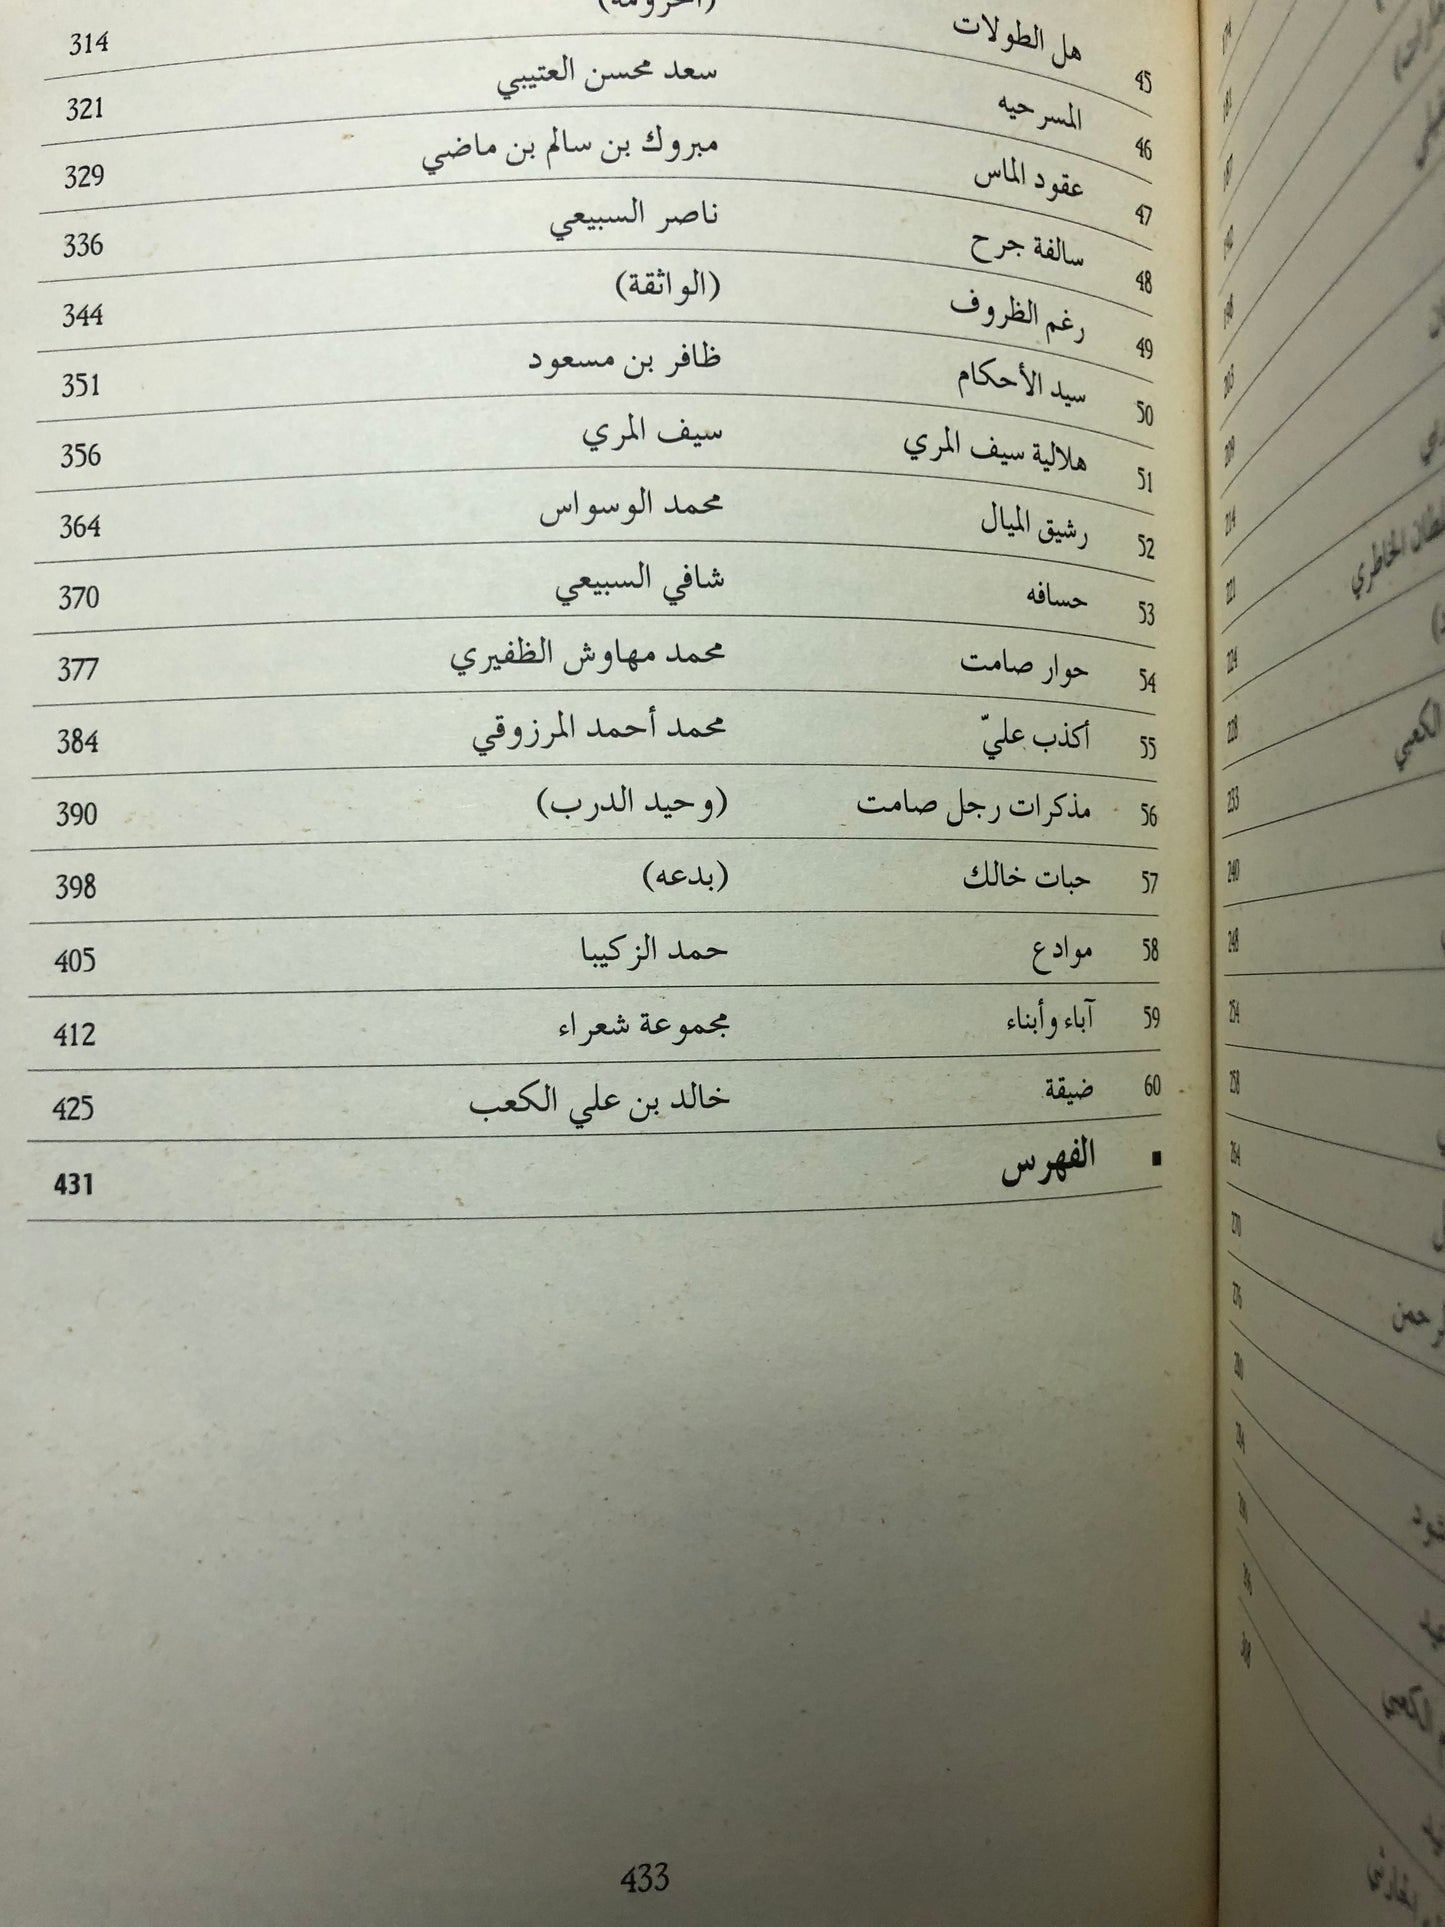 203
209
214
221
الخاطري
224
228
الكعبي
233
240
248
254
258
264
270
276
45 هل الطولات 314
46 المسرحيه سعد محسن العتيبي 321
47 عقود الماس مبروك بن سالم بن ماضي 329
48 سالفة جرح ناصر السبيعي 336
49 رغم الظروف (الواثقة) 344
50 سيد الأحكام ظافر بن مسعود 351
51 هلالية سيف المري سيف المري 356
52 رشيق الميال محمد الوسواس 364
53 حسافه شافي السبيعي 370
54 حوار صامت محمد مهاوش الظفيري 377
55 أكذب عليّ محمد أحمد المرزوقي 384
56 مذكرات رجل صامت (وحيد الدرب) 390
57 حبات خالك (بدعه) 398
58 موادع حمد الزكيبا 405
59 آباء وأبناء مجموعة شعراء 412
60 ضيقة خالد بن علي الكعب 425
■ الفهرس 431
433